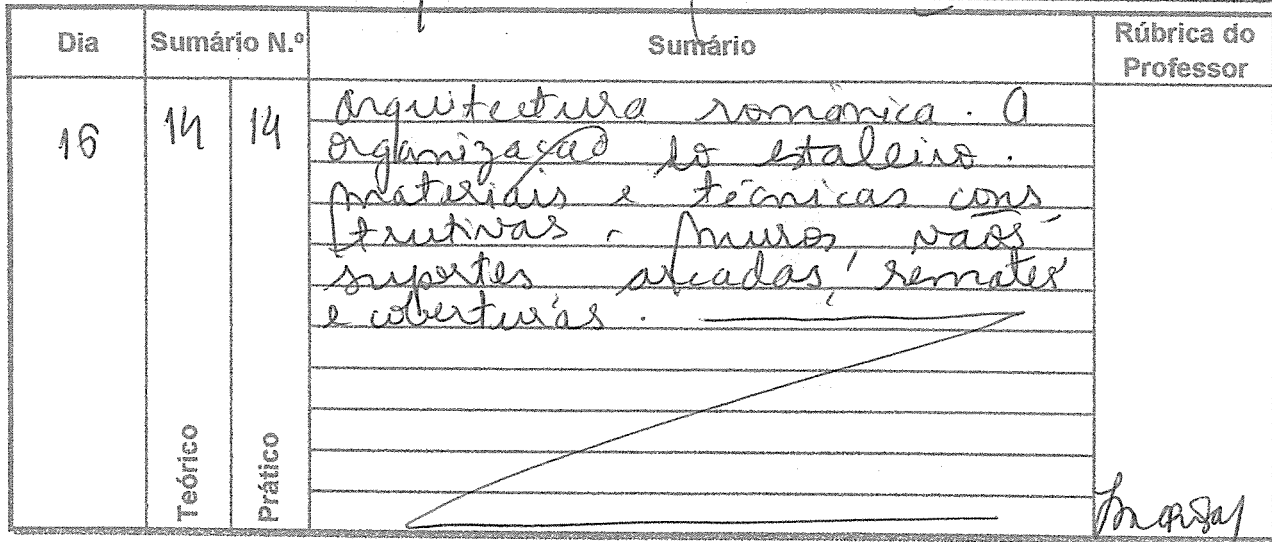 Dia Sumário N.º Sumário Rúbrica do Professor
16 14 14
Arquitectura românica. A
organização do estaleiro.
Materiais e técnicas cons
trutivas. Muros, vãos,
suportes, arcadas, remates
e coberturas.
Teórico
Prático